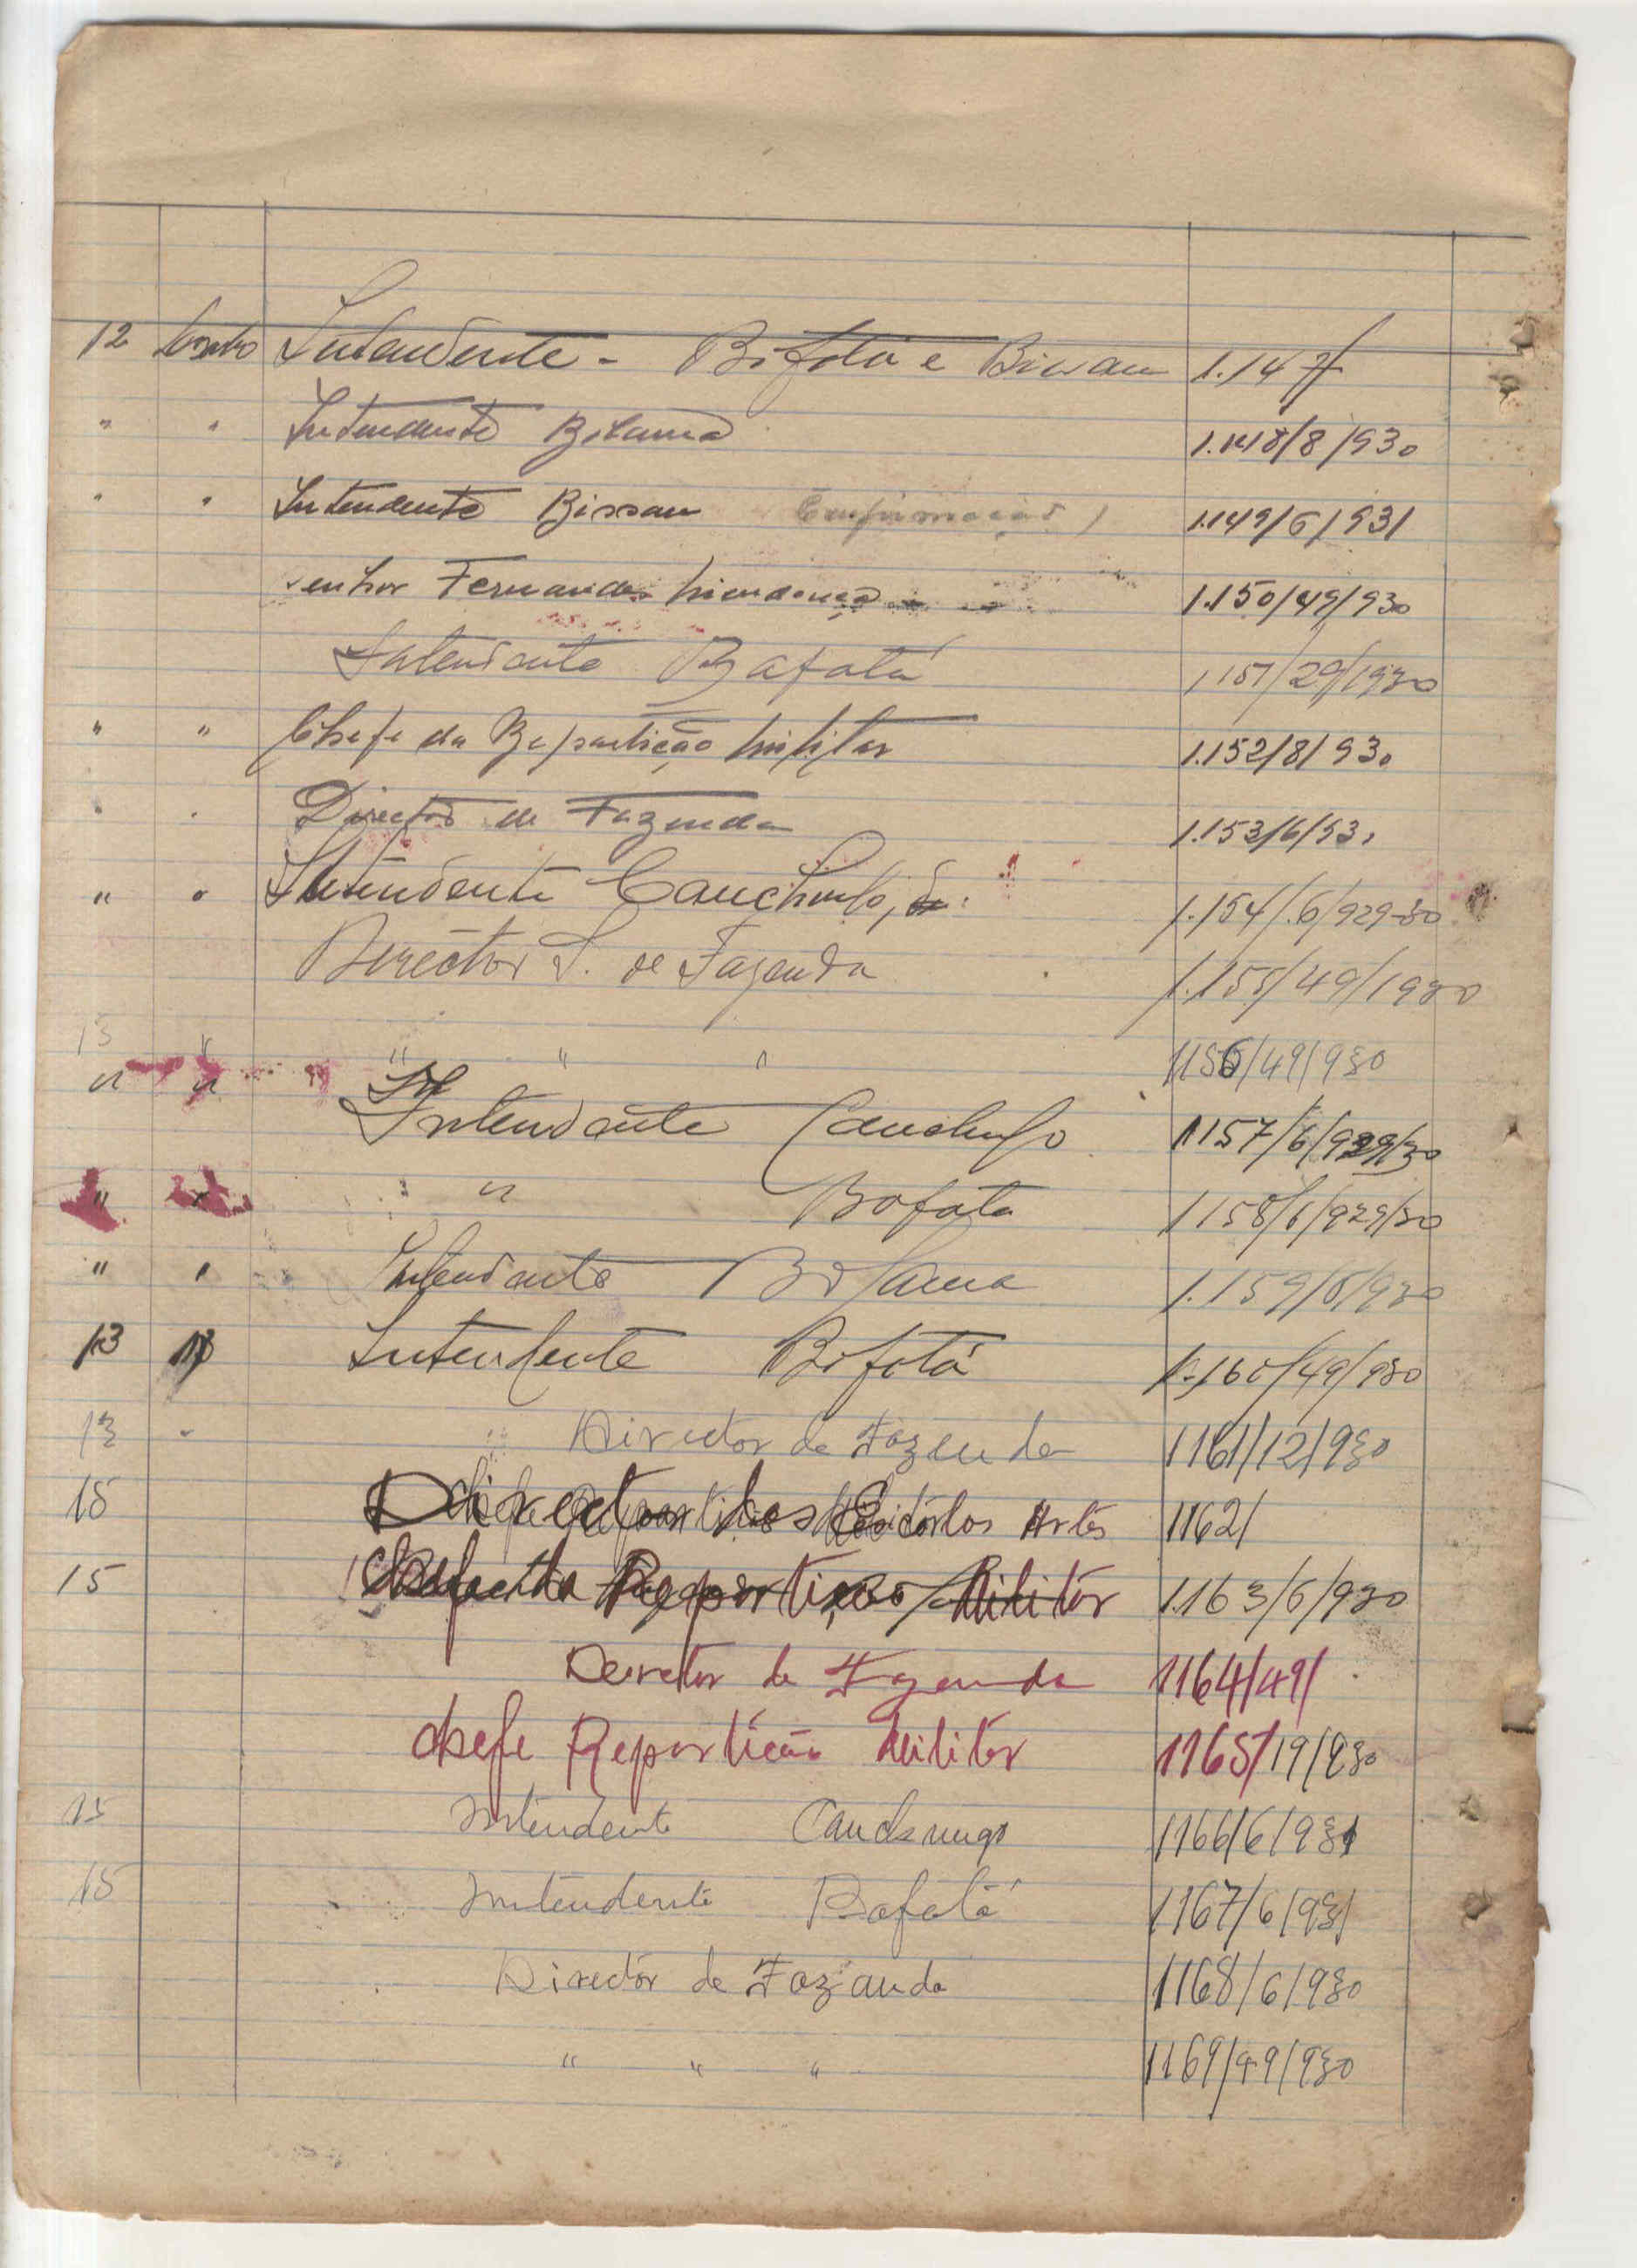 12 Intendente - Bafatá e Bissau 1.147
" " Intendente Bolama 1.148/8/930
" " Intendente Bissau 1.149/6/931
Senhor Fernandes Mendonça 1.150/49/930
Intendente Bafatá 1151/29/1930
" " Chefe da Repartição Militar 1.152/8/930
" " Director de Fazenda 1.153/6/93
" " Intendente Canchungo, 1.154/.6/929-30
Director S. de Fazenda 1.155/49/1930
13 " " " " 1156/49/930
" " Intendente Canchungo 1157/6/929/30
" " " Bafata 1158/6/929/30
" " Intendente Bolama 1.159/6/930
13 Intendente Bafatá 1.160/49/930
13 " Director de Fazenda 1161/12/930
15 Artes 1162/
15 Chefe da Repartição Militár 1.163/6/930
Deretor de Fazenda 1164/49/
chefe Repartição Militár 1165/19/930
15 Intendente Canchungo 1166/6/931
15 Imtendente Bafatá 1167/6/931
Directór de Fazanda 1168/6/930
" " " 1169/49/930